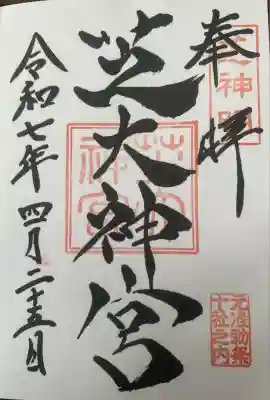 芝神明
奉拝
元准勅祭
十社之内
芝大神宮
芝大
神宮
令和七年四月二十五日